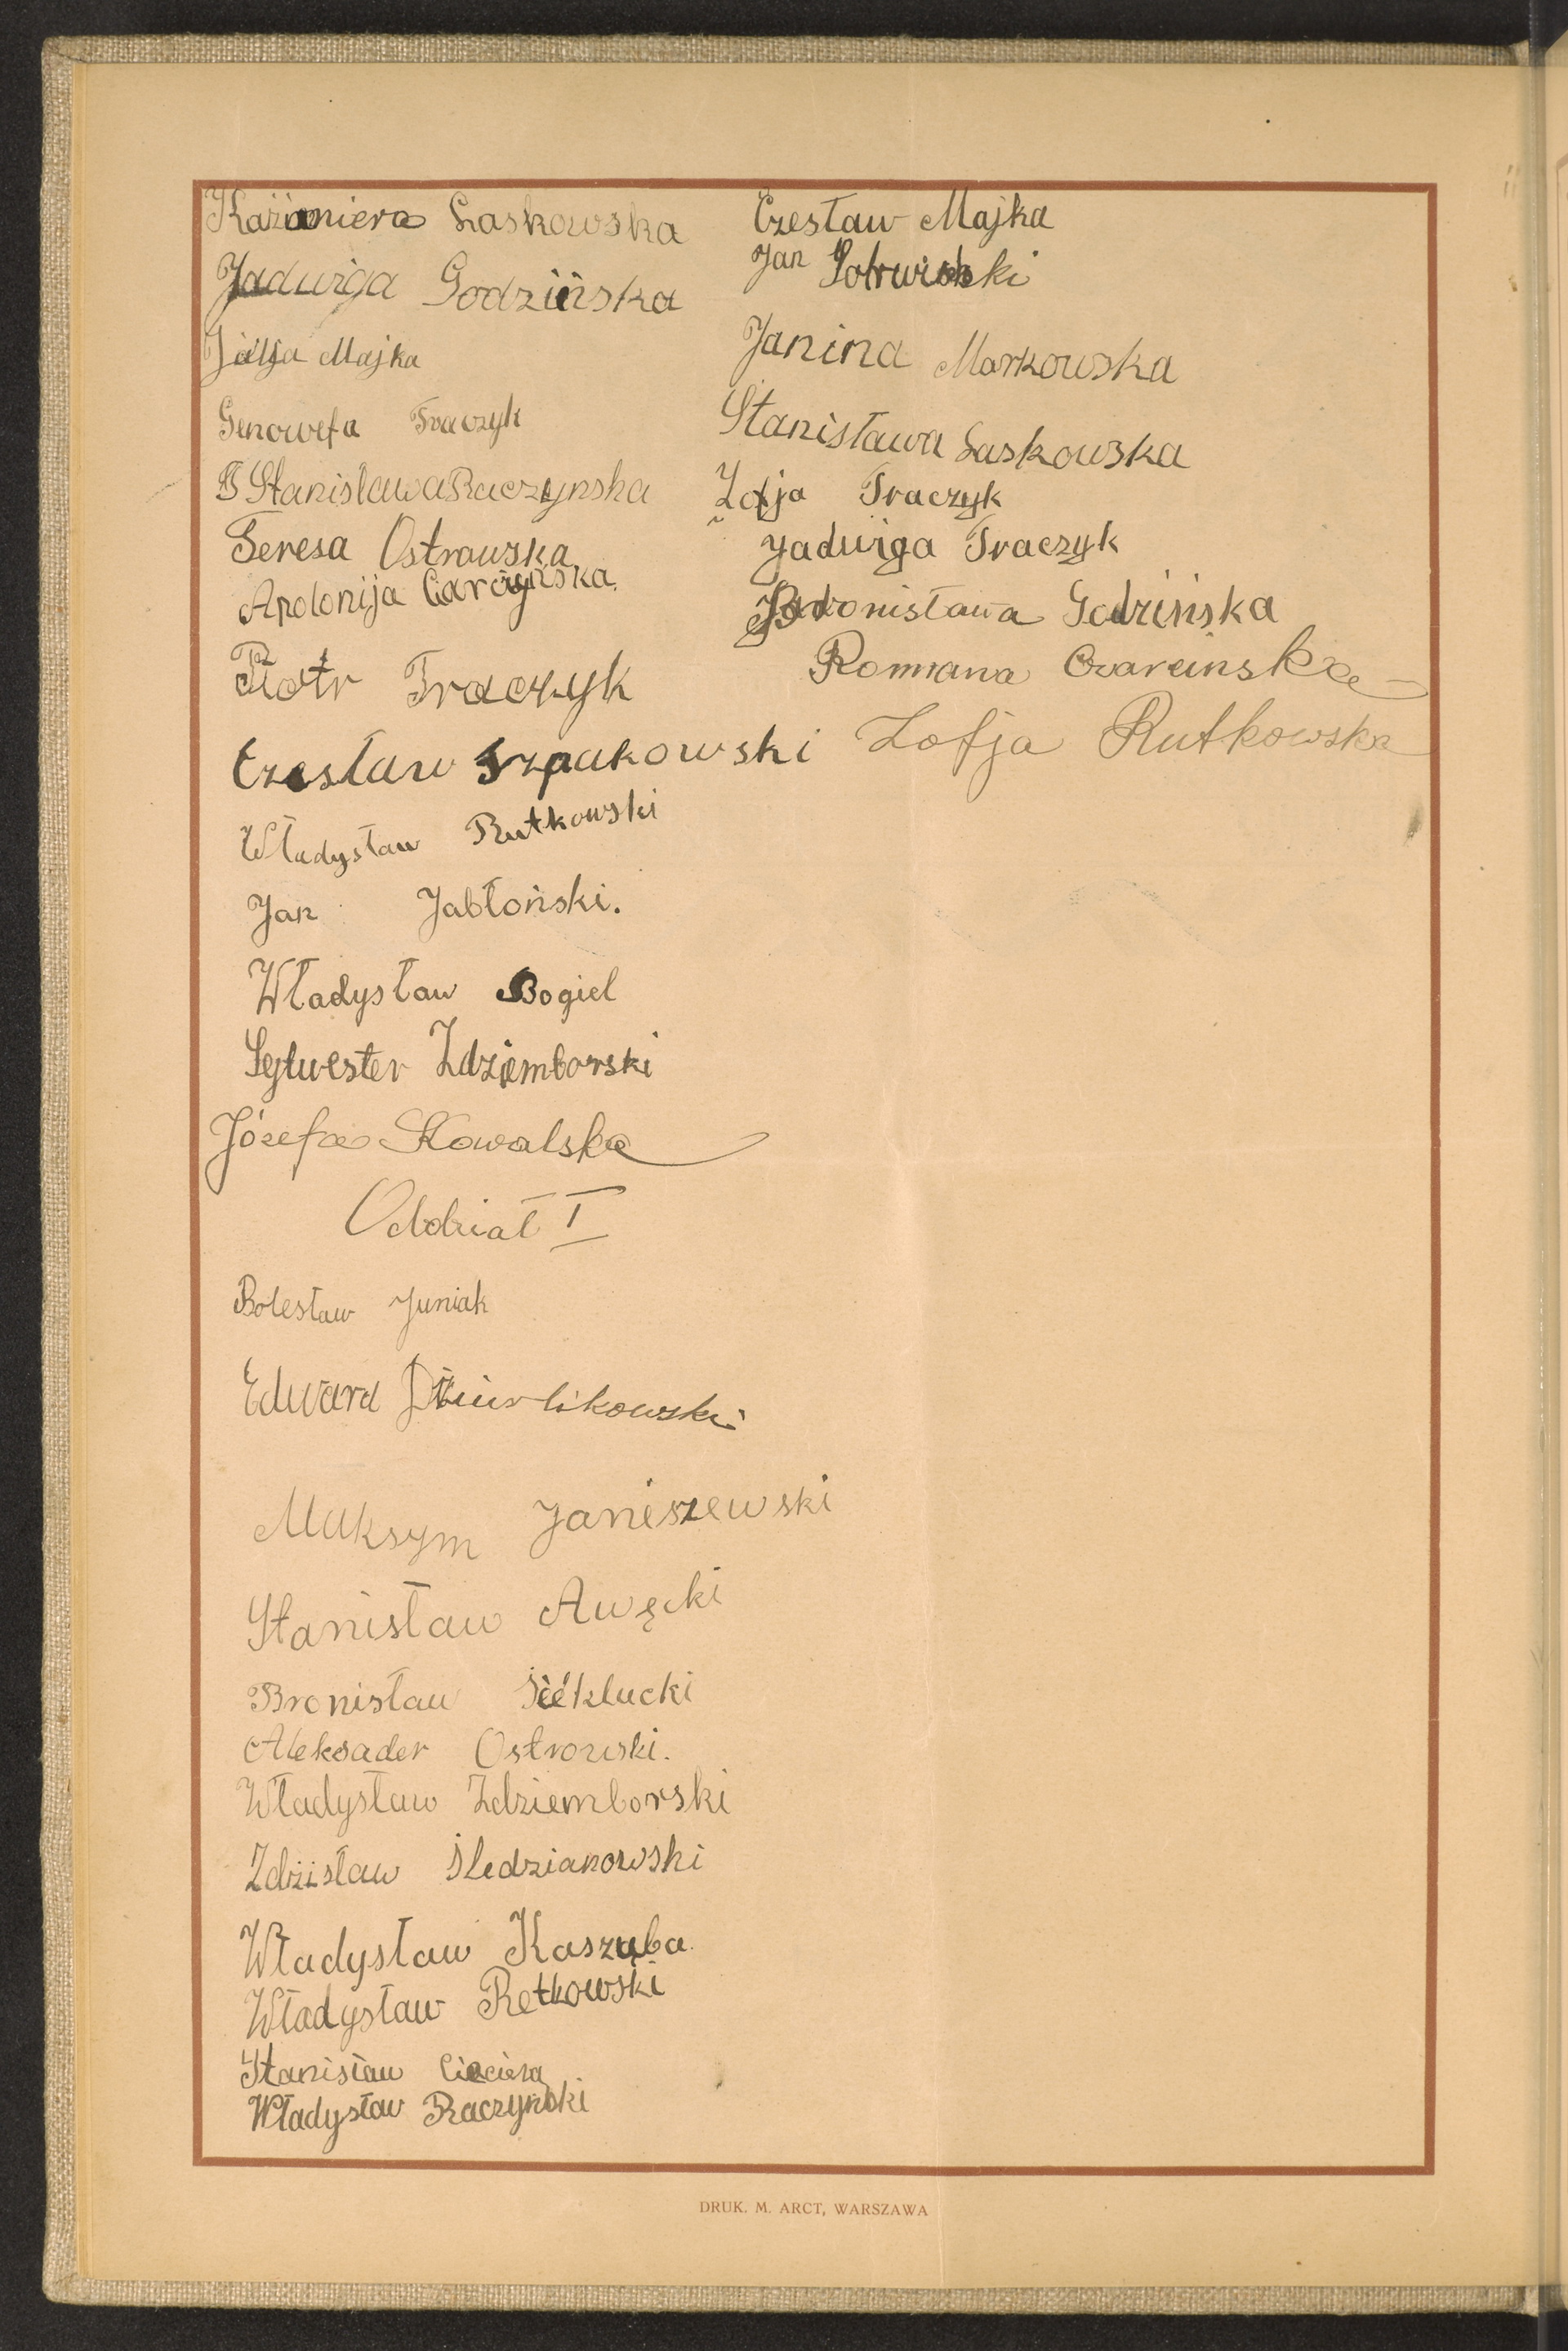 Kazimiera Laskowska
Jadwiga Godzińska
Majka
Genowefa Traczyk
Stanisława Raczynska
Teresa Ostrowska
Apolonija
Piotr Traczyk
Czesław Szpakowski
Władysław Rutkowski
Jan Jabłoński.
Władysław Bogiel
Sylwester Zdziemborski
Józefa Kowalska
Oddział I
Bolesław Juniak
Edward
Maksym Janiszewski
Stanisław Awęcki
Bronisław Siéklucki
Aleksader Ostrowski.
Władysław Zdziemborski
Zdzisław Śledzianowski
Władysław Kaszuba
Władysław Retkowski
Stanisław Cieciera
Władysław Raczyński
Czesław Majka
Jan
Janina Markowska
Stanisława Laskowska
Zofja Traczyk
Jadwiga Traczyk
Bronisława Godzińska
Romana
Zofja Rutkowska
DRUK. M. ARCT, WARSZAWA